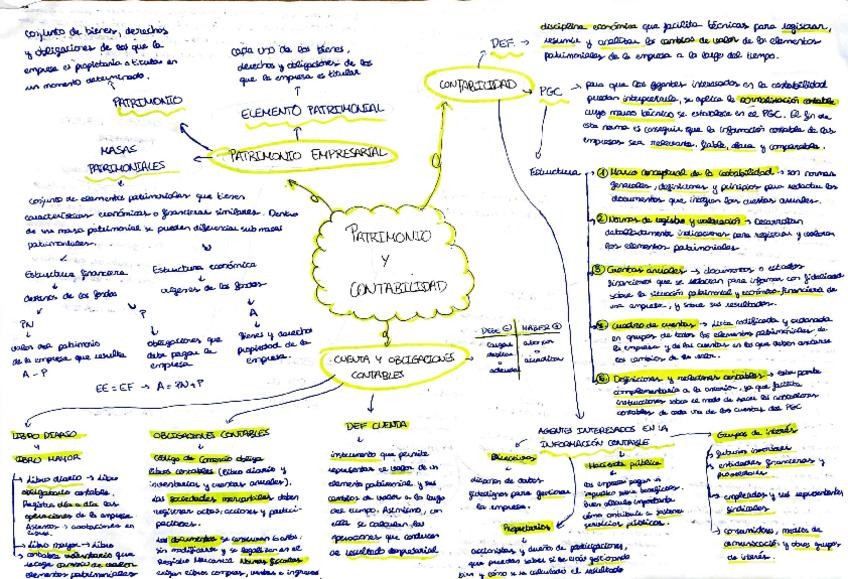 conjunto de bienes, derechos
y obligaciones de los que la
empresa es propietaria o titular en
un momento determinado.
PATRIMONIO
cada uno de los bienes,
derechos y obligaciones de los
que la empresa es titular
ELEMENTO PATRIMONIAL
MASAS
PATRIMONIALES
PATRIMONIO EMPRESARIAL
conjunto de elementos patrimoniales que tienen
características económicas o financieras similares. Dentro
de una masa patrimonial se pueden diferenciar sub masas
patrimoniales.
Estructura financiera
destinos de los fondos
Estructura económica
orígenes de los fondos
PN
valor del patrimonio
de la empresa que resulta
A - P
P
obligaciones que
debe pagar la
empresa
A
Bienes y derechos
propiedad de la
empresa.
EE = EF → A = PN + P
PATRIMONIO
Y
CONTABILIDAD
CONTABILIDAD
DEF
disciplina económica que facilita técnicas para registrar,
resumir y analizar los cambios de valor de los elementos
patrimoniales de la empresa a lo largo del tiempo.
PGC
para que los agentes interesados en la contabilidad
puedan interpretarla, se aplica la normalización contable
cuyo marco técnico se establece en el PGC. El fin de
esta norma es conseguir que la información contable de las
empresas sea relevante, fiable, clara y comparable.
Estructura
① Marco conceptual de la contabilidad → son normas
generales, definiciones y principios para redactar los
documentos que incluyen las cuentas anuales.
② Normas de registro y valoración → desarrollan
detalladamente indicaciones para registrar y valorar
los elementos patrimoniales
③ Cuentas anuales → documentos o estados
financieros que se redactan para informar con fidelidad
sobre la situación patrimonial y económico-financiera de
una empresa, y sobre sus resultados.
④ cuadro de cuentas → lista codificada y ordenada
en grupos de todos los elementos patrimoniales de
la empresa y de las cuentas en las que deben anotarse
los cambios de su valor.
⑤ Definiciones y relaciones contables → esta parte
complementa a la anterior, ya que facilita
instrucciones sobre el modo de hacer las anotaciones
contables de cada una de las cuentas del PGC
CUENTA Y OBLIGACIONES
CONTABLES
DEBE HABER
cargar abonar
o
adeudar acreditar
LIBRO DIARIO
Y
LIBRO MAYOR
Libro diario → Libro
obligatorio contable.
Registra día a día las
operaciones de la empresa
Asientos → anotaciones en
libro.
Libro mayor → Libro
contable voluntario que
recoge cambio de valor
elementos patrimoniales
OBLIGACIONES CONTABLES
Código de Comercio obliga
libros contables (libro diario y
inventarios y cuentas anuales).
Las sociedades mercantiles deben
registrar actas, acciones y partici-
paciones.
Los documentos se conservan 6 años,
sin modificarse y se legalizan en el
Registro Mercantil
exigen libros compras, ventas e ingresos
DEF CUENTA
instrumento que permite
representar el valor de un
elemento patrimonial y sus
cambios de valor a lo largo
del tiempo. Asimismo, con
ella se calculan las
operaciones que conducen
al resultado empresarial
AGENTES INTERESADOS EN LA
INFORMACIÓN CONTABLE
Directivos
disponen de datos
fidedignos para gestionar
la empresa.
Hacienda pública
las empresas pagan
impuestos sobre beneficios.
como contribuir a sostener
servicios públicos.
Propietarios
accionistas y dueño de participaciones,
que pueden saber si se está gestionando
bien y cómo se ha calculado el resultado
Grupos de interés
futuros inversores
entidades financieras y
proveedores
empleados y sus representantes
sindicales
consumidores, medios de
comunicación y otros grupos
de interés.